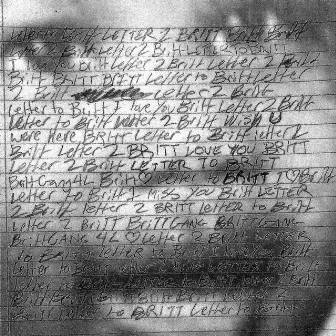 Letter to Britt LETTER 2 BRITT Britt Britt
Letter 2 Britt Letter 2 Britt LETTER TO BRITT
I love you Britt Letter 2 Britt Letter 2 Britt
Britt BRITT BRITT Letter to Britt Letter
2 Britt Letter 2 Britt
Letter to Britt I love you Britt Letter 2 Britt
Letter to Britt Letter 2 Britt Wish U
were Here BRITT Letter to Britt Letter 2
Britt Letter 2 BRITT LOVE YOU BRITT
Letter 2 Britt LETTER TO BRITT
Britt Gang 4L Britt ♡ Letter to BRITT I ♡ Britt
Letter to Britt I miss you Britt LETTER
2 Britt Letter 2 BRITT Letter to Britt
Letter 2 Britt BRITTGANG BRITTGANG
BrittGANG 4L ♡ Letter 2 BRITT LETTER
TO BRITT Letter to Britt
Letter to Britt LETTER TO Britt
Letter to Britt Letter to BRITT
Britt Britt Britt Britt Letter 2
Britt Letter to BRITT Letter to Britt